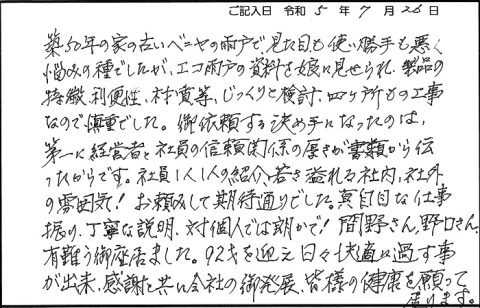 ご記入日 令和 5 年 7 月 26 日
築50年の家の古いベニヤの雨戸で、見た目も使い勝手も悪く
悩みの種でしたが、エコ雨戸の資料を娘に見せられ、製品の
特徴、利便性、材質等、じっくりと検討、四ヶ所もの工事
なので慎重でした。御依頼する決め手になったのは、
第一に経営者と社員の信頼関係の厚さが書類から伝
ったからです。社員1人1人の紹介、若さ溢れる社内、社外
の雰囲気! お頼みして期待通りでした。真面目な仕事
振り、丁寧な説明、対個人では朗かで! 間野さん、野口さん、
有難う御座居ました。92才を迎え日々快適に過す事
が出来、感謝と共に会社の御発展、皆様の健康を願って
居ります。